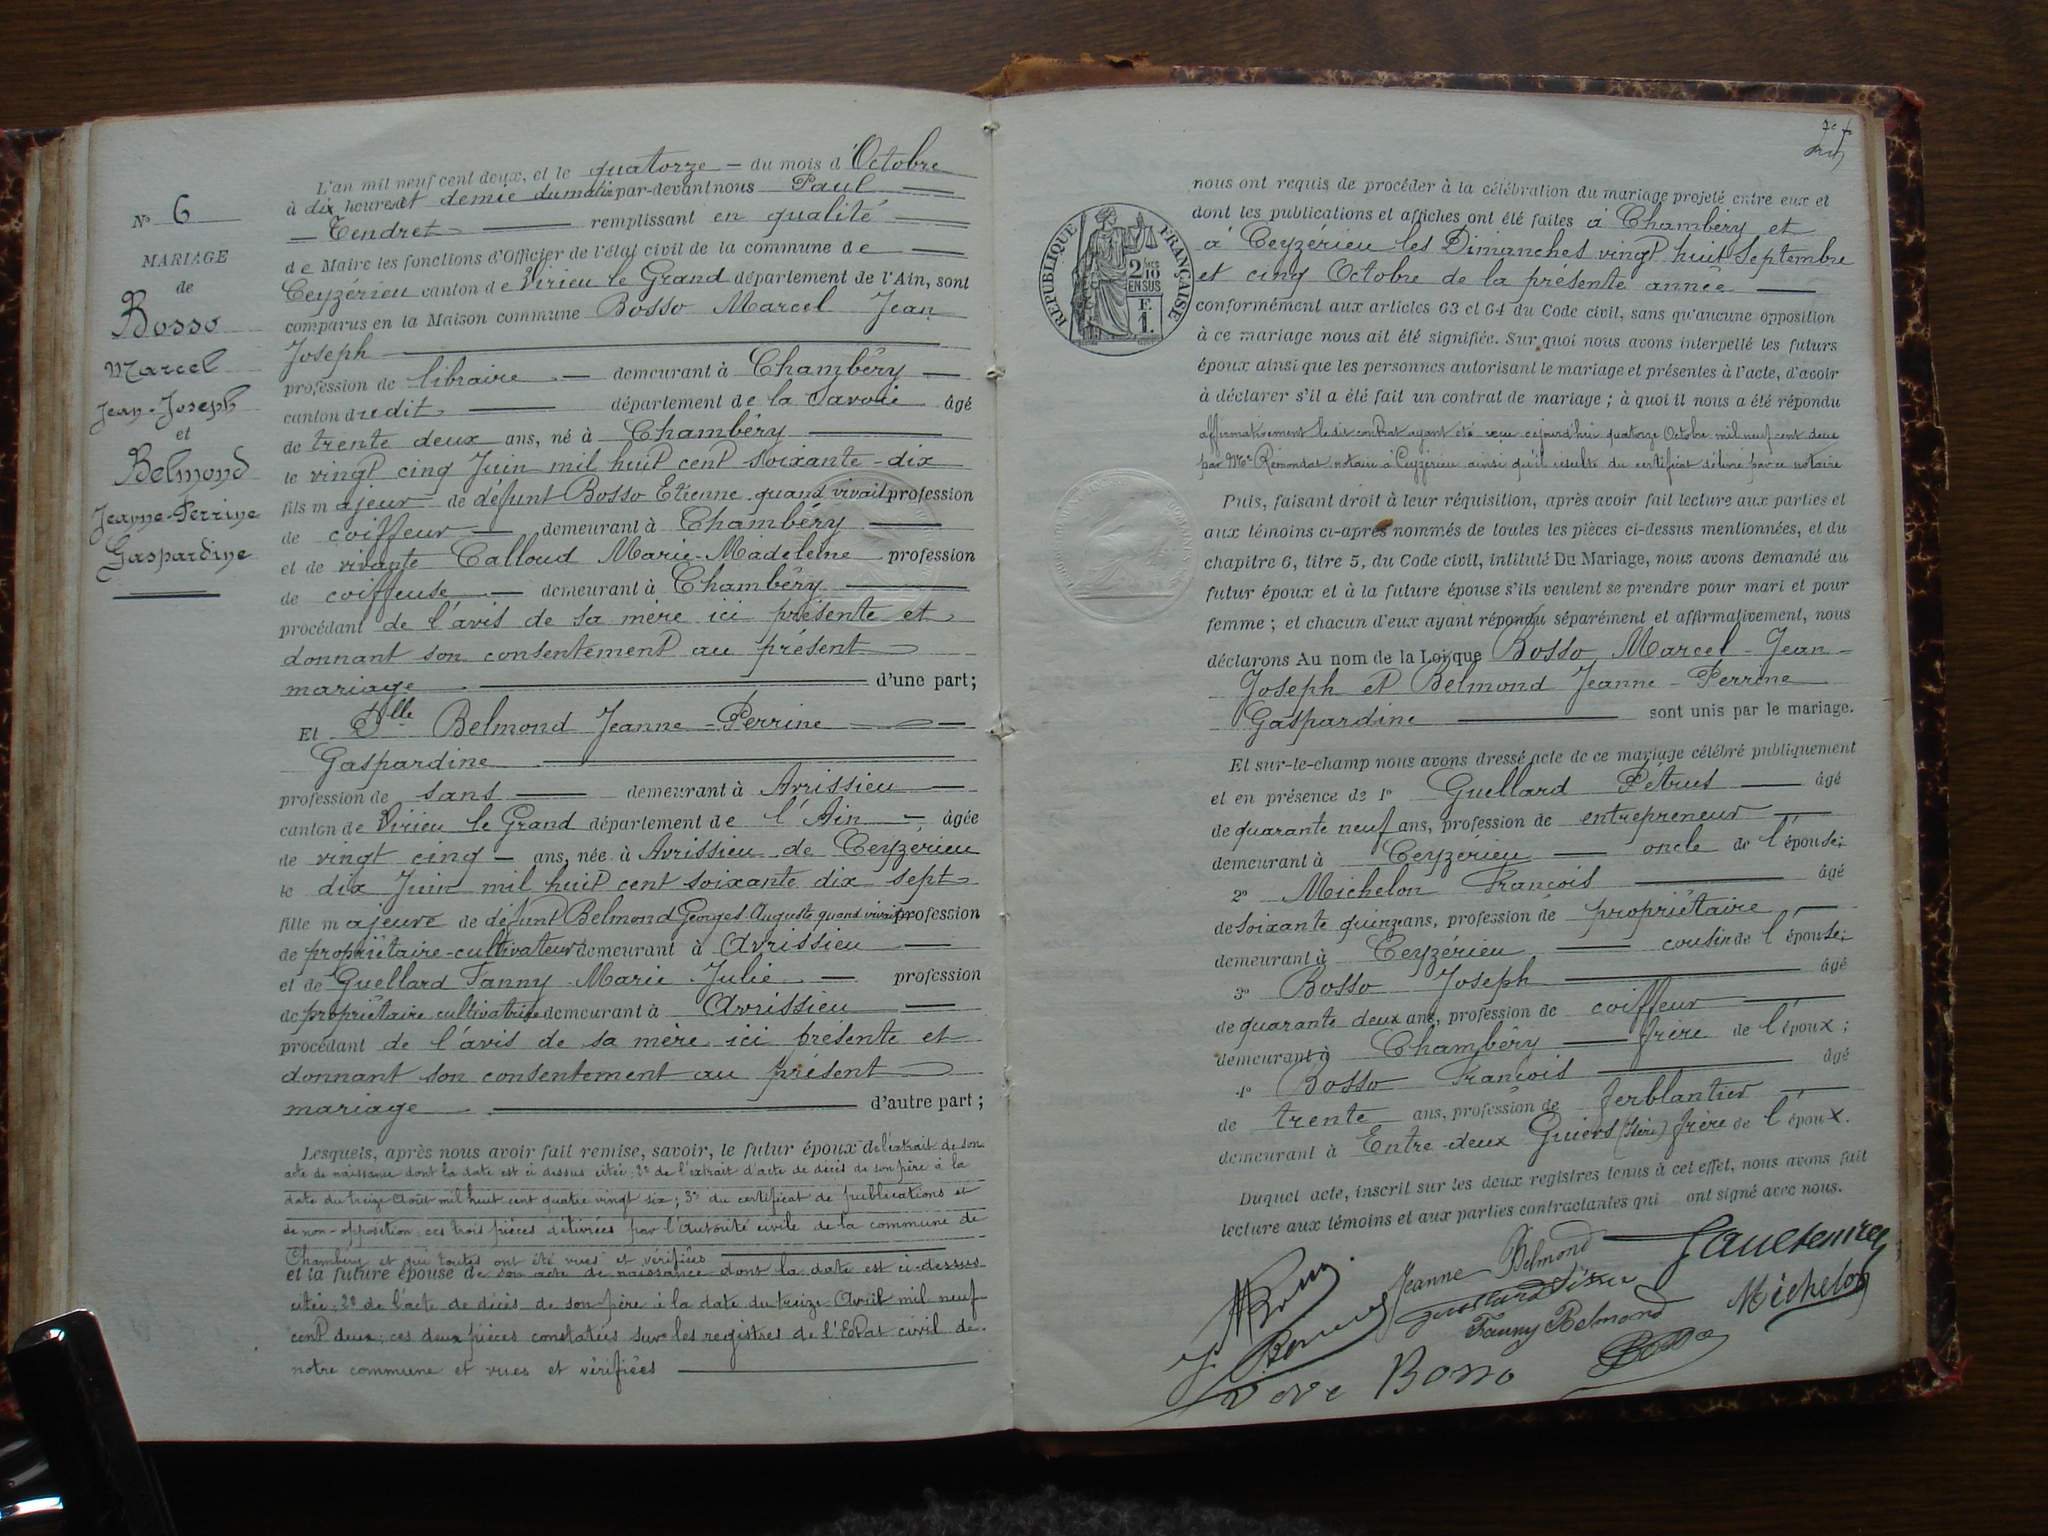 N° 6
MARIAGE
de
Bosso
Marcel
Jean-Joseph
et
Belmond
Jeanne-Perrine
Gaspardine
L'an mil neuf cent deux, et le quatorze — du mois d'Octobre
à dix heures et demie du matin par-devant nous Paul
Tendret remplissant en qualité
de Maire les fonctions d'Officier de l'état civil de la commune de
Ceyzérieu canton de Virieu le Grand département de l'Ain, sont
comparus en la Maison commune Bosso Marcel Jean
Joseph
profession de libraire — demeurant à Chambéry
canton dudit département de la Savoie âgé
de trente deux ans, né à Chambéry
le vingt cinq Juin mil huit cent soixante-dix
fils majeur de défunt Bosso Etienne quand vivait profession
de coiffeur — demeurant à Chambéry
et de vivante Calloud Marie-Madeleine profession
de coiffeuse — demeurant à Chambéry
procédant de l'avis de sa mère ici présente et
donnant son consentement au présent
mariage d'une part;
Et Dlle Belmond Jeanne-Perrine
Gaspardine
profession de sans demeurant à Avrissieu
canton de Virieu le Grand département de l'Ain — âgée
de vingt cinq — ans, née à Avrissieu de Ceyzérieu
le dix Juin mil huit cent soixante dix sept
fille majeure de défunt Belmond Georges Auguste quand vivait profession
de propriétaire-cultivateur demeurant à Avrissieu
et de Guellard Fanny Marie Julie — profession
de propriétaire cultivatrice demeurant à Avrissieu
procédant de l'avis de sa mère ici présente et
donnant son consentement au présent
mariage d'autre part;
Lesquels, après nous avoir fait remise, savoir, le futur époux de l'extrait de son
acte de naissance dont la date est ci dessus citée; 2° de l'extrait d'acte de décès de son père à la
date du treize Août mil huit cent quatre vingt six; 3° du certificat de publications et
de non-opposition; ces trois pièces délivrées par l'autorité civile de la commune de
Chambéry et qui toutes ont été vues et vérifiées
et la future épouse de son acte de naissance dont la date est ci-dessus
citée; 2° de l'acte de décès de son père à la date du treize Avril mil neuf
cent deux; ces deux pièces constatées sur les registres de l'Etat civil de
notre commune et vues et vérifiées
RÉPUBLIQUE FRANÇAISE
2/10
EN SUS
F.
1.
nous ont requis de procéder à la célébration du mariage projeté entre eux et
dont les publications et affiches ont été faites à Chambéry et
à Ceyzérieu les Dimanches vingt huit Septembre
et cinq Octobre de la présente année
conformément aux articles 63 et 64 du Code civil, sans qu'aucune opposition
à ce mariage nous ait été signifiée. Sur quoi nous avons interpellé les futurs
époux ainsi que les personnes autorisant le mariage et présentes à l'acte, d'avoir
à déclarer s'il a été fait un contrat de mariage; à quoi il nous a été répondu
affirmativement ledit contrat ayant été reçu cejourd'hui quatorze Octobre mil neuf cent deux
par Me Remondat notaire à Ceyzérieu ainsi qu'il résulte du certificat délivré par ce notaire
Puis, faisant droit à leur réquisition, après avoir fait lecture aux parties et
aux témoins ci-après nommés de toutes les pièces ci-dessus mentionnées, et du
chapitre 6, titre 5, du Code civil, intitulé Du Mariage, nous avons demandé au
futur époux et à la future épouse s'ils veulent se prendre pour mari et pour
femme; et chacun d'eux ayant répondu séparément et affirmativement, nous
déclarons Au nom de la Loi, que Bosso Marcel-Jean-
Joseph et Belmond Jeanne-Perrine
Gaspardine sont unis par le mariage.
Et sur-le-champ nous avons dressé acte de ce mariage célébré publiquement
et en présence de 1° Guellard Pétrus — âgé
de quarante neuf ans, profession de entrepreneur
demeurant à Ceyzérieu — oncle de l'épouse;
2° Michelon François âgé
de soixante quinze ans, profession de propriétaire
demeurant à Ceyzérieu cousin de l'épouse;
3° Bosso Joseph âgé
de quarante deux ans, profession de coiffeur
demeurant à Chambéry — frère de l'époux;
4° Bosso François âgé
de trente ans, profession de ferblantier
demeurant à Entre-deux Guiers (Isère) frère de l'époux.
Duquel acte, inscrit sur les deux registres tenus à cet effet, nous avons fait
lecture aux témoins et aux parties contractantes qui ont signé avec nous.
Jeanne Belmond
Fanny Belmond
Michelon
Veve Bosso
Bosso